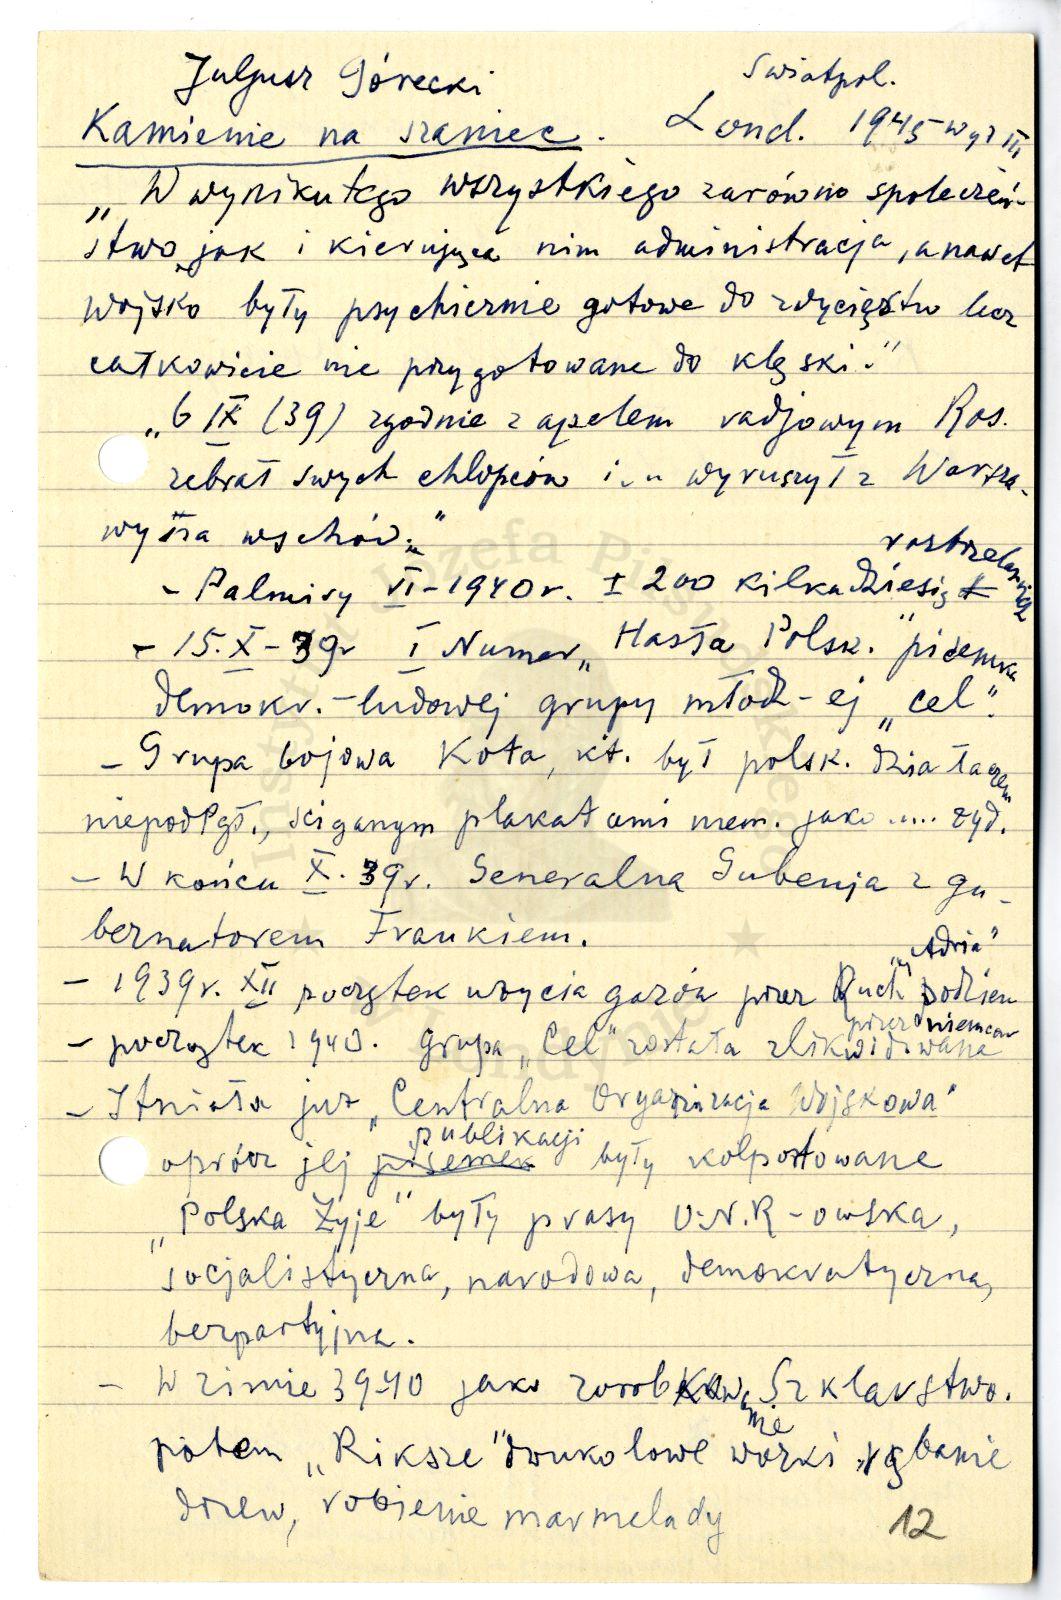 Juljusz Górecki Swiatpol.
Kamienie na szaniec. Lond. 1945 wyd III
"W wyniku tego wszystkiego zarówno społeczeń-
stwo, jak i kierująca nim administracja, a nawet
wojsko były psychicznie gotowe do zwycięstw lecz
całkowicie nie przygotowane do klęski."
"6 IX (39) zgodnie z apelem radjowym Ros.
zebrał swych chłopców i wyruszył z Warsza-
wy na wschód."
rozstrzelanych
- Palmiry VI-1940r. ± 200 kilkadziesią
- 15.X-39r I Numer "Hasła Polsk." pisemka
demokr.-ludowej grupy młodz-ej "cel".
- Grupa bojowa Kota, kt. był polsk. działaczem
niepodłgł., ściganym plakatami niem. jako .... żyd.
- W końcu X.39r. Generalna Gubernja z gu-
bernatorem Frankiem.
"Adria"
- 1939r. XII początek użycia gazów przez Ruch podziem
przez niemców
- początek 1940. grupa "Cel" została zlikwidowana
- Istniała już "Centralna Organizacja Wojskowa"
publikacji
oprócz jej pisemek były kolportowane
"Polska Żyje" były prasy O.N.R-owska,
socjalistyczna, narodowa, demokratyczna,
bezpartyjna.
- W zimie 39-40 jako zarobkowanie Szklarstwo.
potem "Riksze" dwukołowe wózki, rąbanie
drzew, robienie marmelady
12
Instytut Józefa Piłsudskiego ★ w Londynie ★